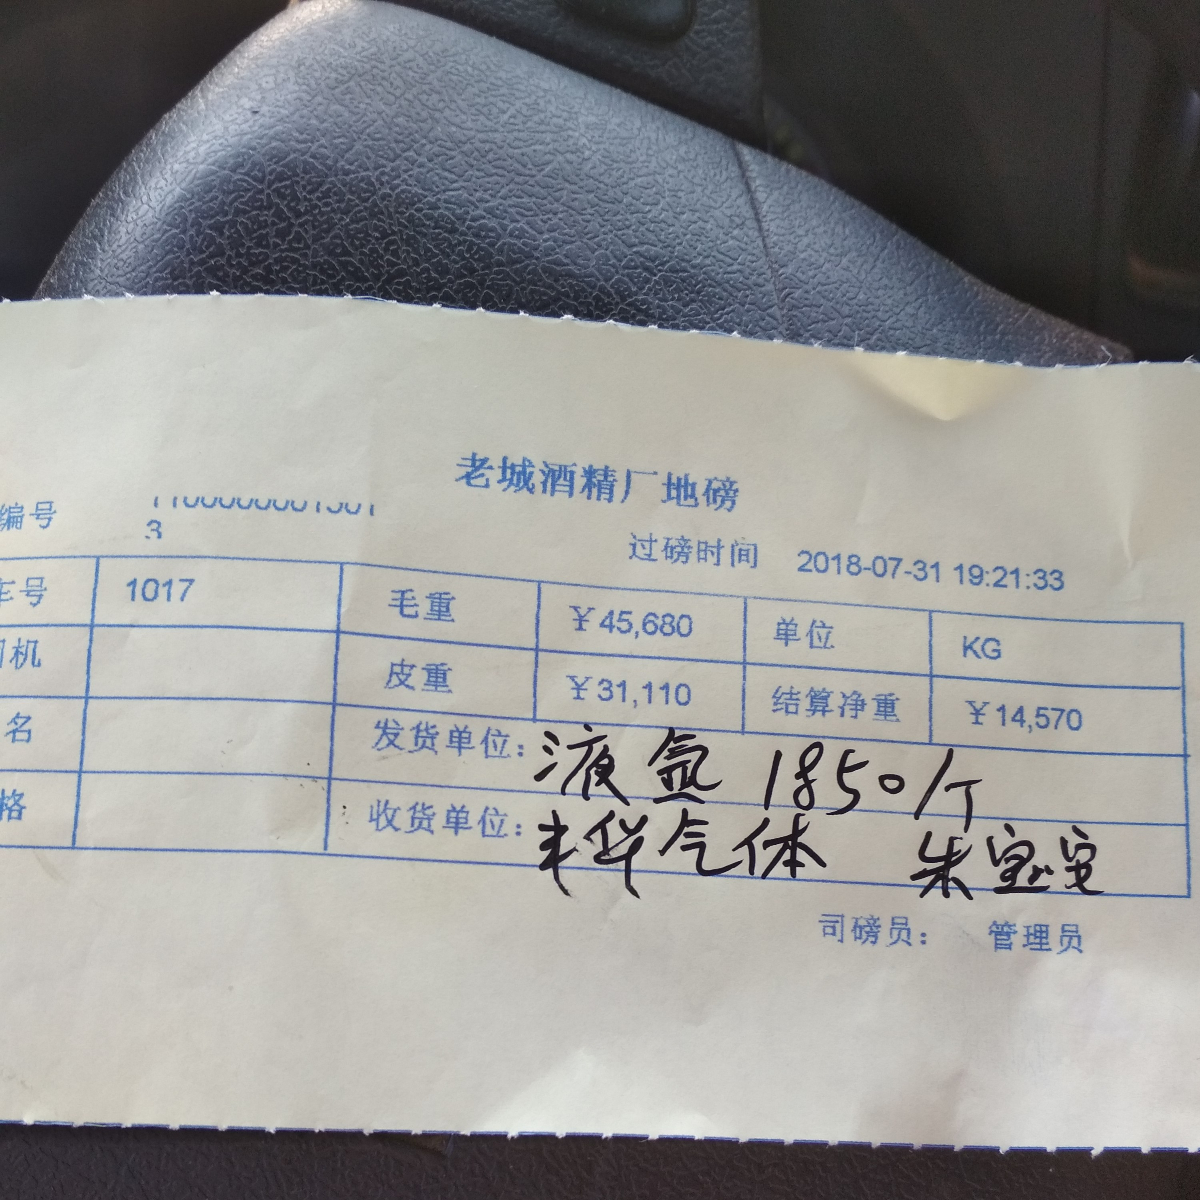 老城酒精厂地磅
编号
3
过磅时间 2018-07-31 19:21:33
车号 1017 毛重 ￥45,680 单位 KG
机 皮重 ￥31,110 结算净重 ￥14,570
名 发货单位: 液氩 1850/T
格 收货单位: 气体 朱宝安
司磅员: 管理员